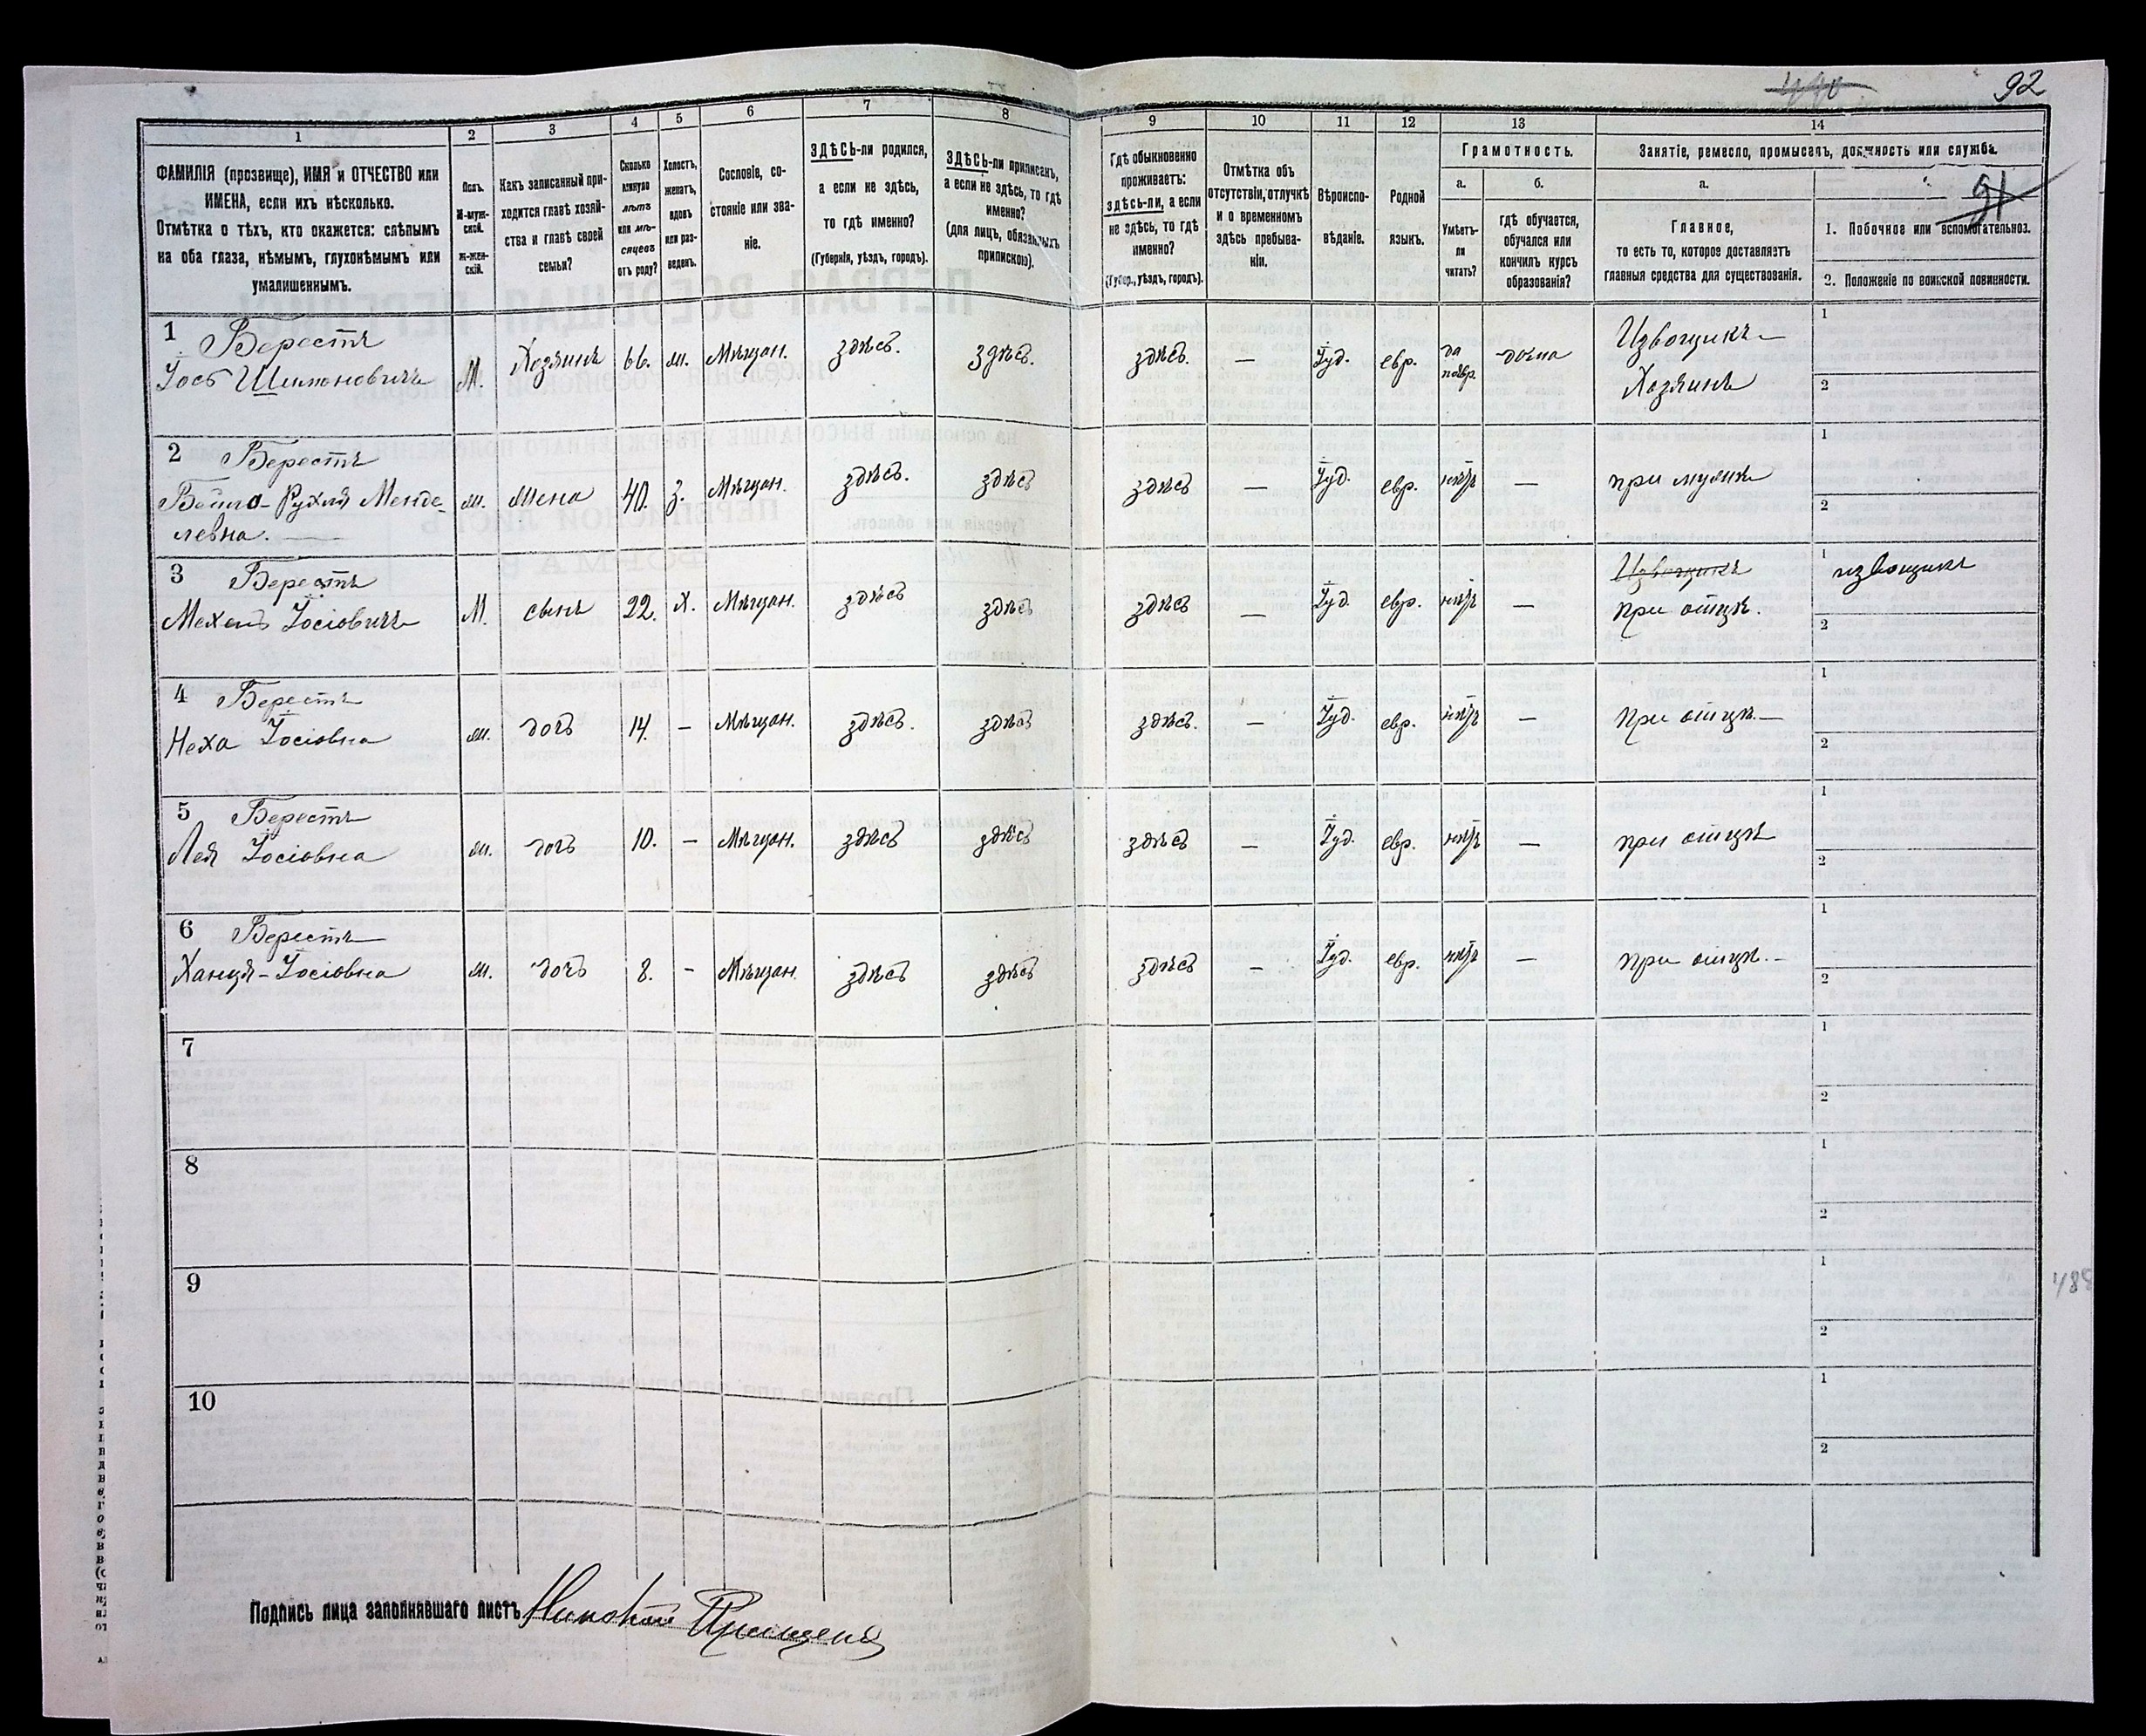 92
1
2
3
4
5
6
7
8
9
10
11
12
13
14
ФАМИЛІЯ (прозвище), ИМЯ и ОТЧЕСТВО или
ИМЕНА, если ихъ нѣсколько.
Отмѣтка о тѣхъ, кто окажется: слѣпымъ
на оба глаза, нѣмымъ, глухонѣмымъ или
умалишеннымъ.
Полъ.
М-муж-
ской.
ж-жен-
скій.
Какъ записанный при-
ходится главѣ хозяй-
ства и главѣ своей
семьи?
Сколько
минуло
лѣтъ
или мѣ-
сяцевъ
отъ роду?
Холостъ,
женатъ,
вдовъ
или раз-
веденъ.
Сословіе, со-
стояніе или зва-
ніе.
ЗДѢСЬ-ли родился,
а если не здѣсь,
то гдѣ именно?
(Губернія, уѣздъ, городъ).
ЗДѢСЬ-ли приписанъ,
а если не здѣсь, то гдѣ
именно?
(для лицъ, обязанныхъ
припискою).
Гдѣ обыкновенно
проживаетъ:
здѣсь-ли, а если
не здѣсь, то гдѣ
именно?
(Губер., уѣздъ, городъ).
Отмѣтка объ
отсутствіи, отлучкѣ
и о временномъ
здѣсь пребыва-
ніи.
Вѣроиспо-
вѣданіе.
Родной
языкъ.
Грамотность.
а.
Умѣетъ-
ли
читать?
б.
гдѣ обучается,
обучался или
кончилъ курсъ
образованія?
Занятіе, ремесло, промыселъ, должность или служба.
а.
91
Главное,
то есть то, которое доставляетъ
главныя средства для существованія.
1. Побочное или вспомогательное.
2. Положеніе по воинской повинности.
1 Берестъ
Іось Шимоновичъ
М.
Хозяинъ
66.
ж.
Мѣщан.
здѣсь.
здѣсь.
здѣсь.
—
Іуд.
евр.
да
по евр.
дома
Извощикъ —
Хозяинъ
1
2
2 Берестъ
Бейла-Рухля Менде-
левна.
ж.
Жена
40.
з.
Мѣщан.
здѣсь.
здѣсь
здѣсь
—
Іуд.
евр.
нѣтъ
—
при мужѣ
1
2
3 Берестъ
Іосіовичъ
М.
сынъ
22.
х.
Мѣщан.
здѣсь
здѣсь
здѣсь
—
Іуд.
евр.
нѣтъ
—
Извощикъ
при отцѣ.
1 извощикъ
2
4 Берестъ
Неха Іосіовна
ж.
дочь
14.
-
Мѣщан.
здѣсь.
здѣсь
здѣсь.
—
Іуд.
евр.
нѣтъ
—
При отцѣ. —
1
2
5 Берестъ
Лея Іосіовна
ж.
дочь
10.
-
Мѣщан.
здѣсь
здѣсь
здѣсь
—
Іуд.
евр.
нѣтъ
—
при отцѣ
1
2
6 Берестъ
Ханця-Іосіовна
ж.
дочь
8.
-
Мѣщан.
здѣсь
здѣсь
здѣсь
—
Іуд.
евр.
нѣтъ
—
при отцѣ. -
1
2
7
1
2
8
1
2
9
1
2
10
1
2
Подпись лица заполнявшаго листъ